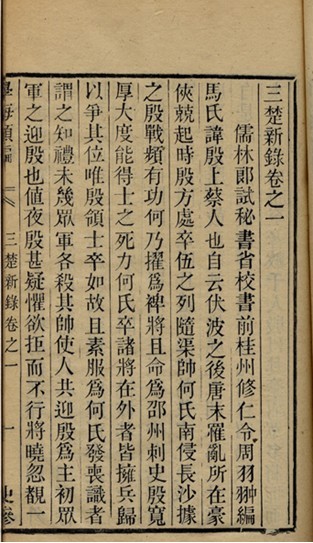 三楚新錄卷之一
儒林郎試秘書省校書前桂州修仁令周羽翀編
馬氏諱殷上蔡人也自云伏波之後唐末罹亂所在豪
俠競起時殷方處卒伍之列隨渠帥何氏南侵長沙據
之殷戰頻有功何乃擢為裨將且命為邵州刺史殷寬
厚大度能得士之死力何氏卒諸將在外者皆擁兵歸
以爭其位唯殷領士卒如故且素服為何氏發喪識者
謂之知禮未幾眾軍各殺其帥使人共迎殷為主初眾
軍之迎殷也値夜殷甚疑懼欲拒而不行將曉忽覩一
學海類編
三楚新錄卷之一
一
史參